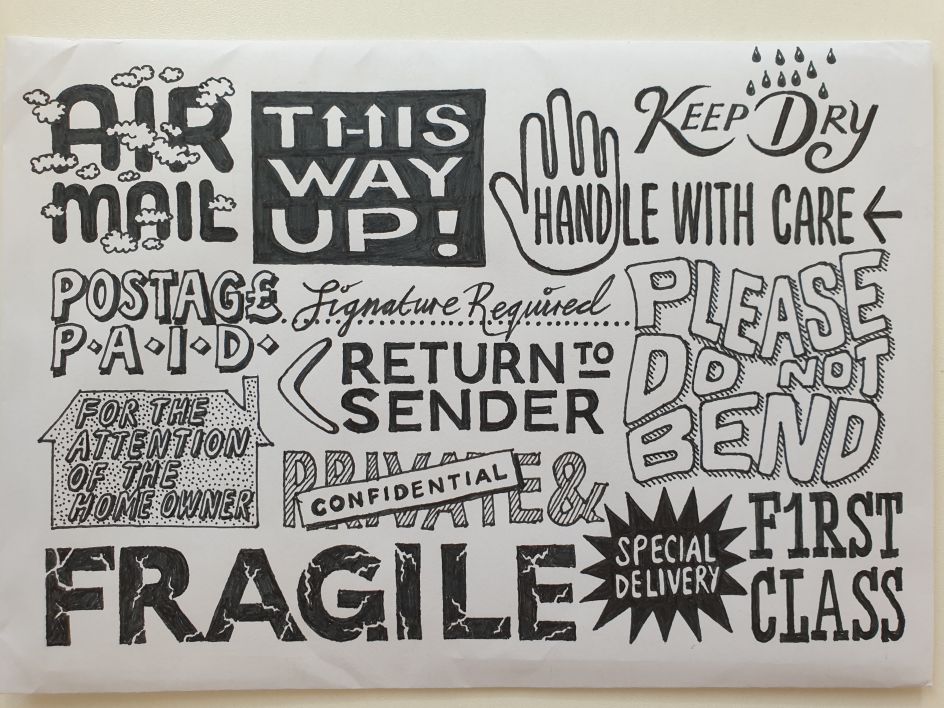 AIR
MAIL
THIS
WAY
UP!
KEEP DRY
HANDLE WITH CARE
POSTAGE
P·A·I·D·
Signature Required
PLEASE
DO NOT
BEND
RETURN TO
SENDER
FOR THE
ATTENTION
OF THE
HOME OWNER
PRIVATE &
CONFIDENTIAL
FRAGILE
SPECIAL
DELIVERY
F1RST
CLASS